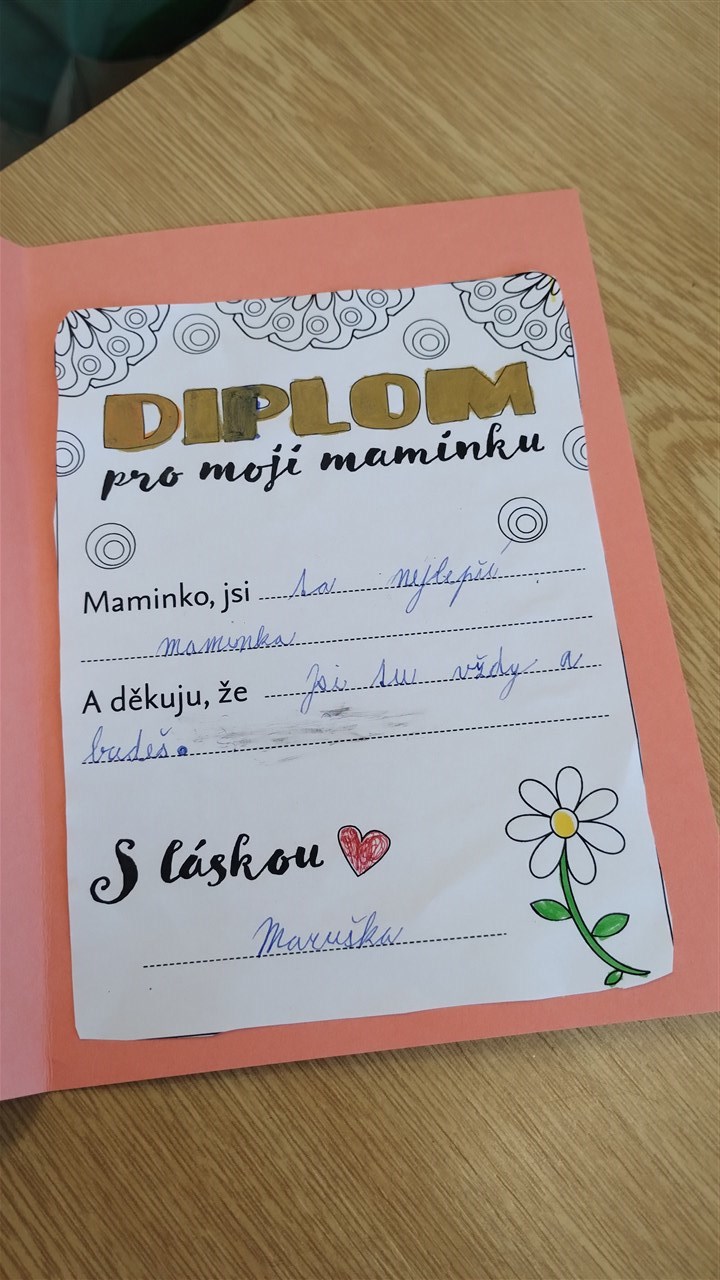 DIPLOM
pro moji maminku
Maminko, jsi ta nejlepší
maminka
A děkuju, že jsi tu vždy a
budeš.
S láskou
Maruška